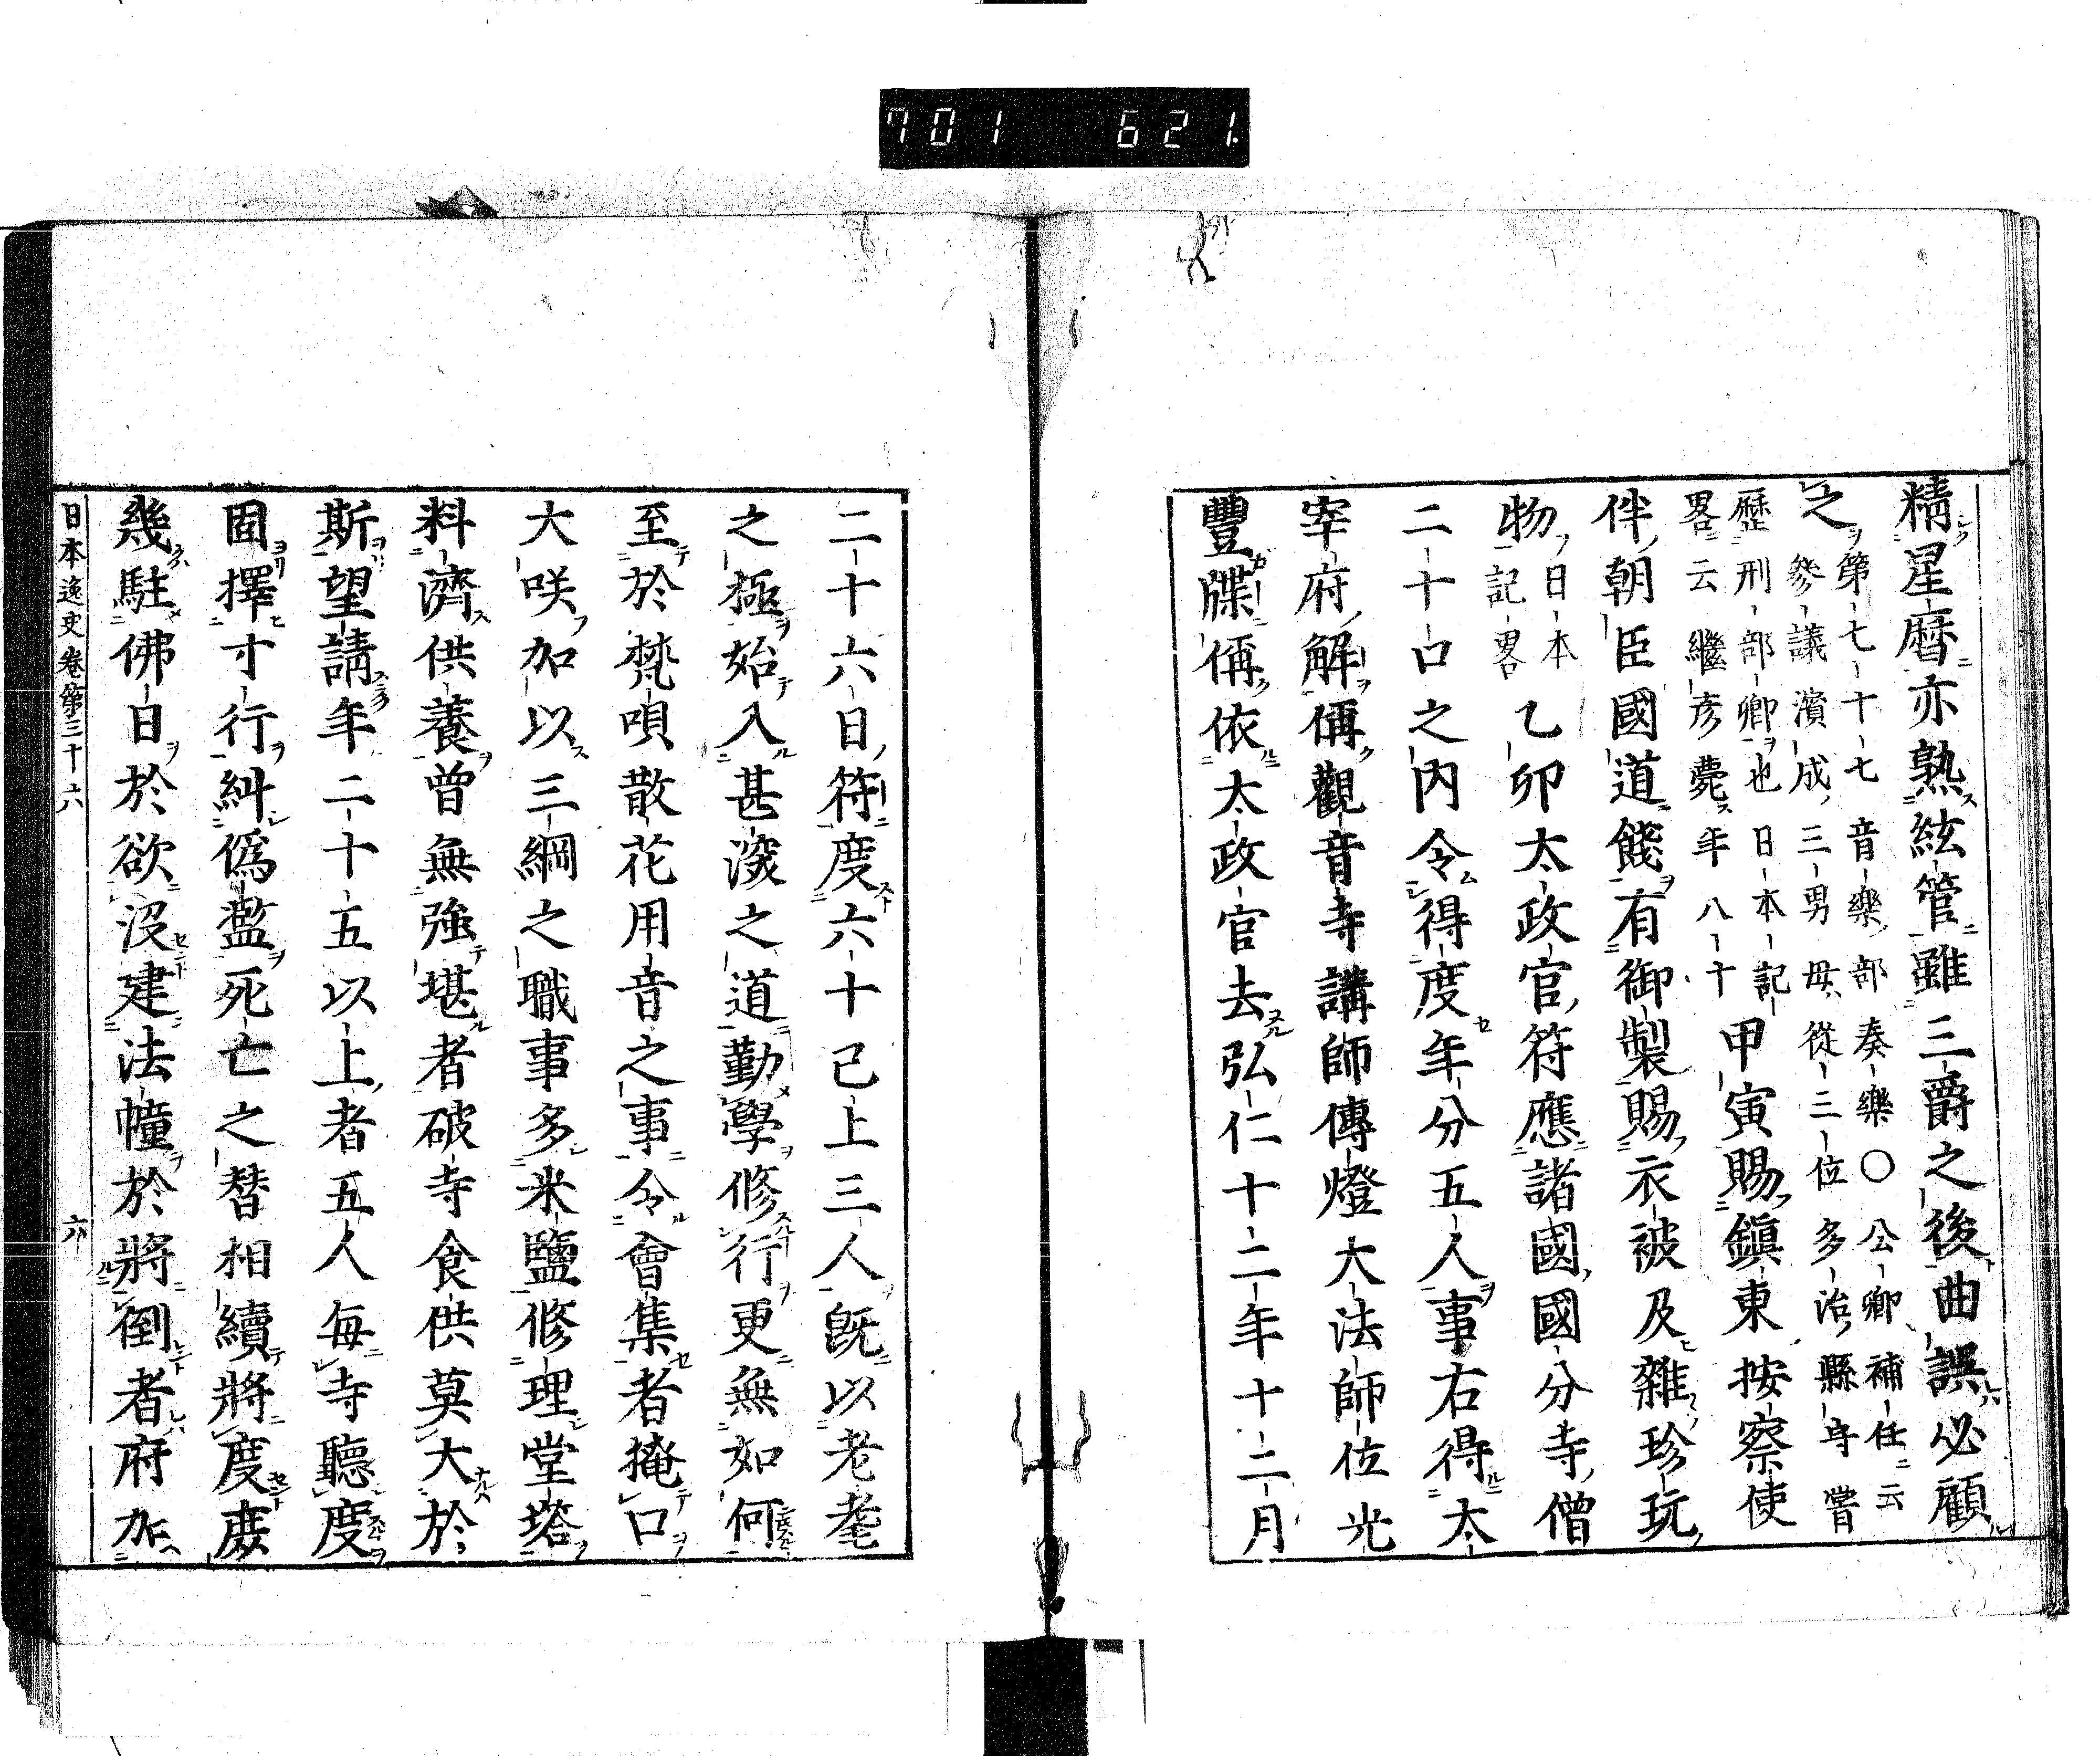 701 621.
精星暦亦熟絃管雖三爵之後曲誤必顧
之第七十七音樂部奏樂〇公卿補任云
參議濱成三男母從三位多治縣守嘗
歷刑部卿也日本記
畧云繼彥薨年八十甲寅賜鎭東按察使
伴朝臣國道餞有御製賜衣被及雜珍玩
物日本
記畧乙卯太政官符應諸國國分寺僧
二十口之內令得度年分五人事右得太
宰府解偁觀音寺講師傳燈大法師位光
豐牒偁依太政官去弘仁十二年十二月
二十六日符度六十已上三人既以老耄
之極始入甚深之道勤學修行更無如何
至於梵唄散花用音之事令會集者掩口
大咲加以三綱之職事多米鹽修理堂塔
料濟供養曾無強堪者破寺食供莫大於
斯望請年二十五以上者五人每寺聽度
固擇寸行糾僞濫死亡之替相續將度庶
幾駐佛日於欲沒建法幢於將倒者府加
日本逸史卷第三十六 六